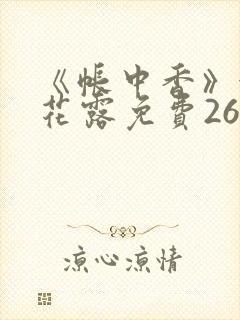 《帐中香》
花露免費26
凉心凉情